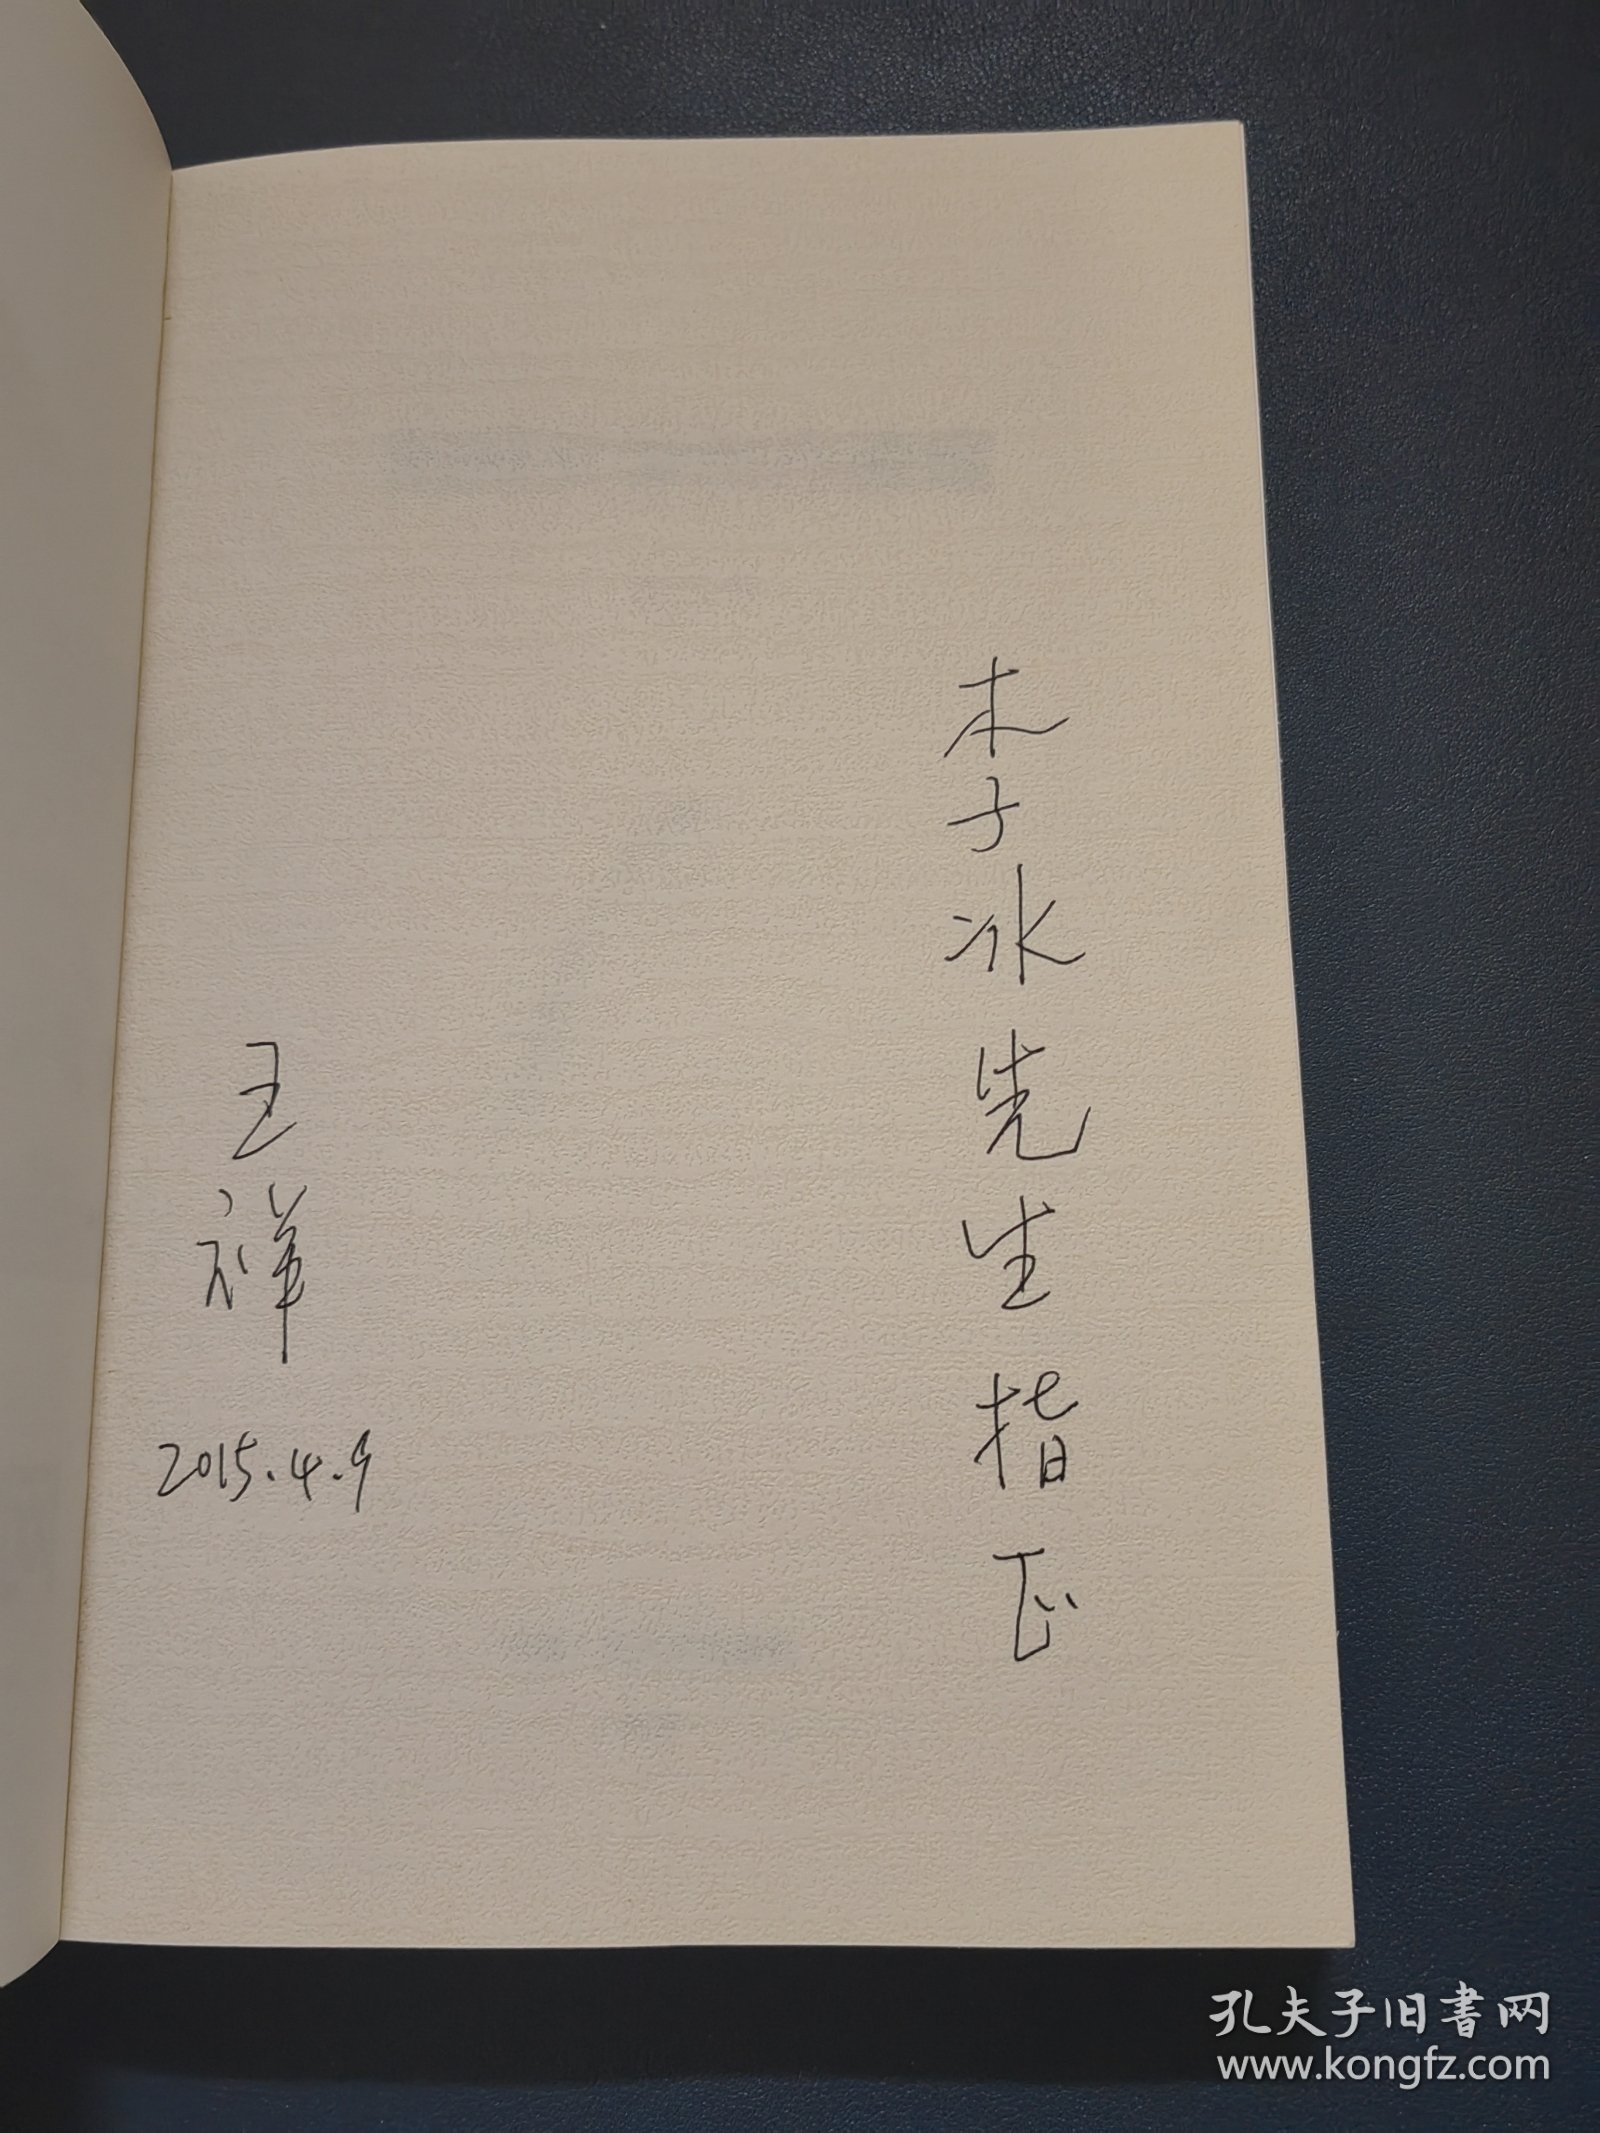 木子冰先生指正
王祥
2015.4.9
孔夫子旧书网
www.kongfz.com